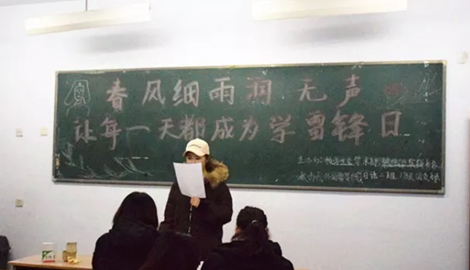 春风细雨润无声
让每一天都成为学雷锋日